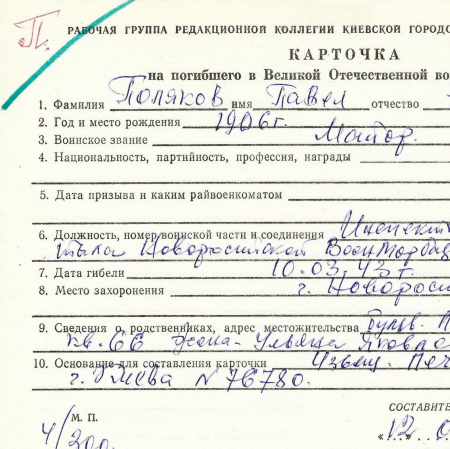 П.
РАБОЧАЯ ГРУППА РЕДАКЦИОННОЙ КОЛЛЕГИИ КИЕВСКОЙ ГОРОДС
КАРТОЧКА
на погибшего в Великой Отечественной во
1. Фамилия Поляков имя Павел отчество
2. Год и место рождения 1906г.
3. Воинское звание Майор.
4. Национальность, партийность, профессия, награды
5. Дата призыва и каким райвоенкоматом
6. Должность, номер воинской части и соединения
тыла Новоросийской
7. Дата гибели 10.03.43г.
8. Место захоронения г. Новорос
9. Сведения о родственниках, адрес местожительства Бульв.
кв. 66 жена - Ульяна
10. Основание для составления карточки Извещ. Печ
г. N 76780.
М. П.
СОСТАВИТЕ
4/200
"12 0